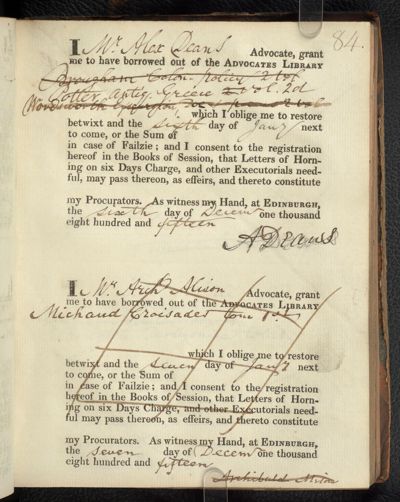 84.
I Mr. Alex Deans Advocate, grant
me to have borrowed out of the ADVOCATES LIBRARY
Brougham Colon. Policy 2 vol.
Potter Antiq. Greece 2 vol. 2d
Wordsworth Excursion
which I oblige me to restore
betwixt and the sixth day of Jany next
to come, or the Sum of
in case of Failzie; and I consent to the registration
hereof in the Books of Session, that Letters of Horn-
ing on six Days Charge, and other Executorials need-
ful, may pass thereon, as effeirs, and thereto constitute
my Procurators. As witness my Hand, at EDINBURGH,
the sixth day of Decem one thousand
eight hundred and fifteen
A Deans
I Mr. Archd. Alison Advocate, grant
me to have borrowed out of the ADVOCATES LIBRARY
Michaud Croisades tom 1st
which I oblige me to restore
betwixt and the seven day of Jany next
to come, or the Sum of
in case of Failzie; and I consent to the registration
hereof in the Books of Session, that Letters of Horn-
ing on six Days Charge, and other Executorials need-
ful may pass thereon, as effeirs, and thereto constitute
my Procurators. As witness my Hand, at EDINBURGH,
the seven day of Decem one thousand
eight hundred and fifteen
Archibald Alison